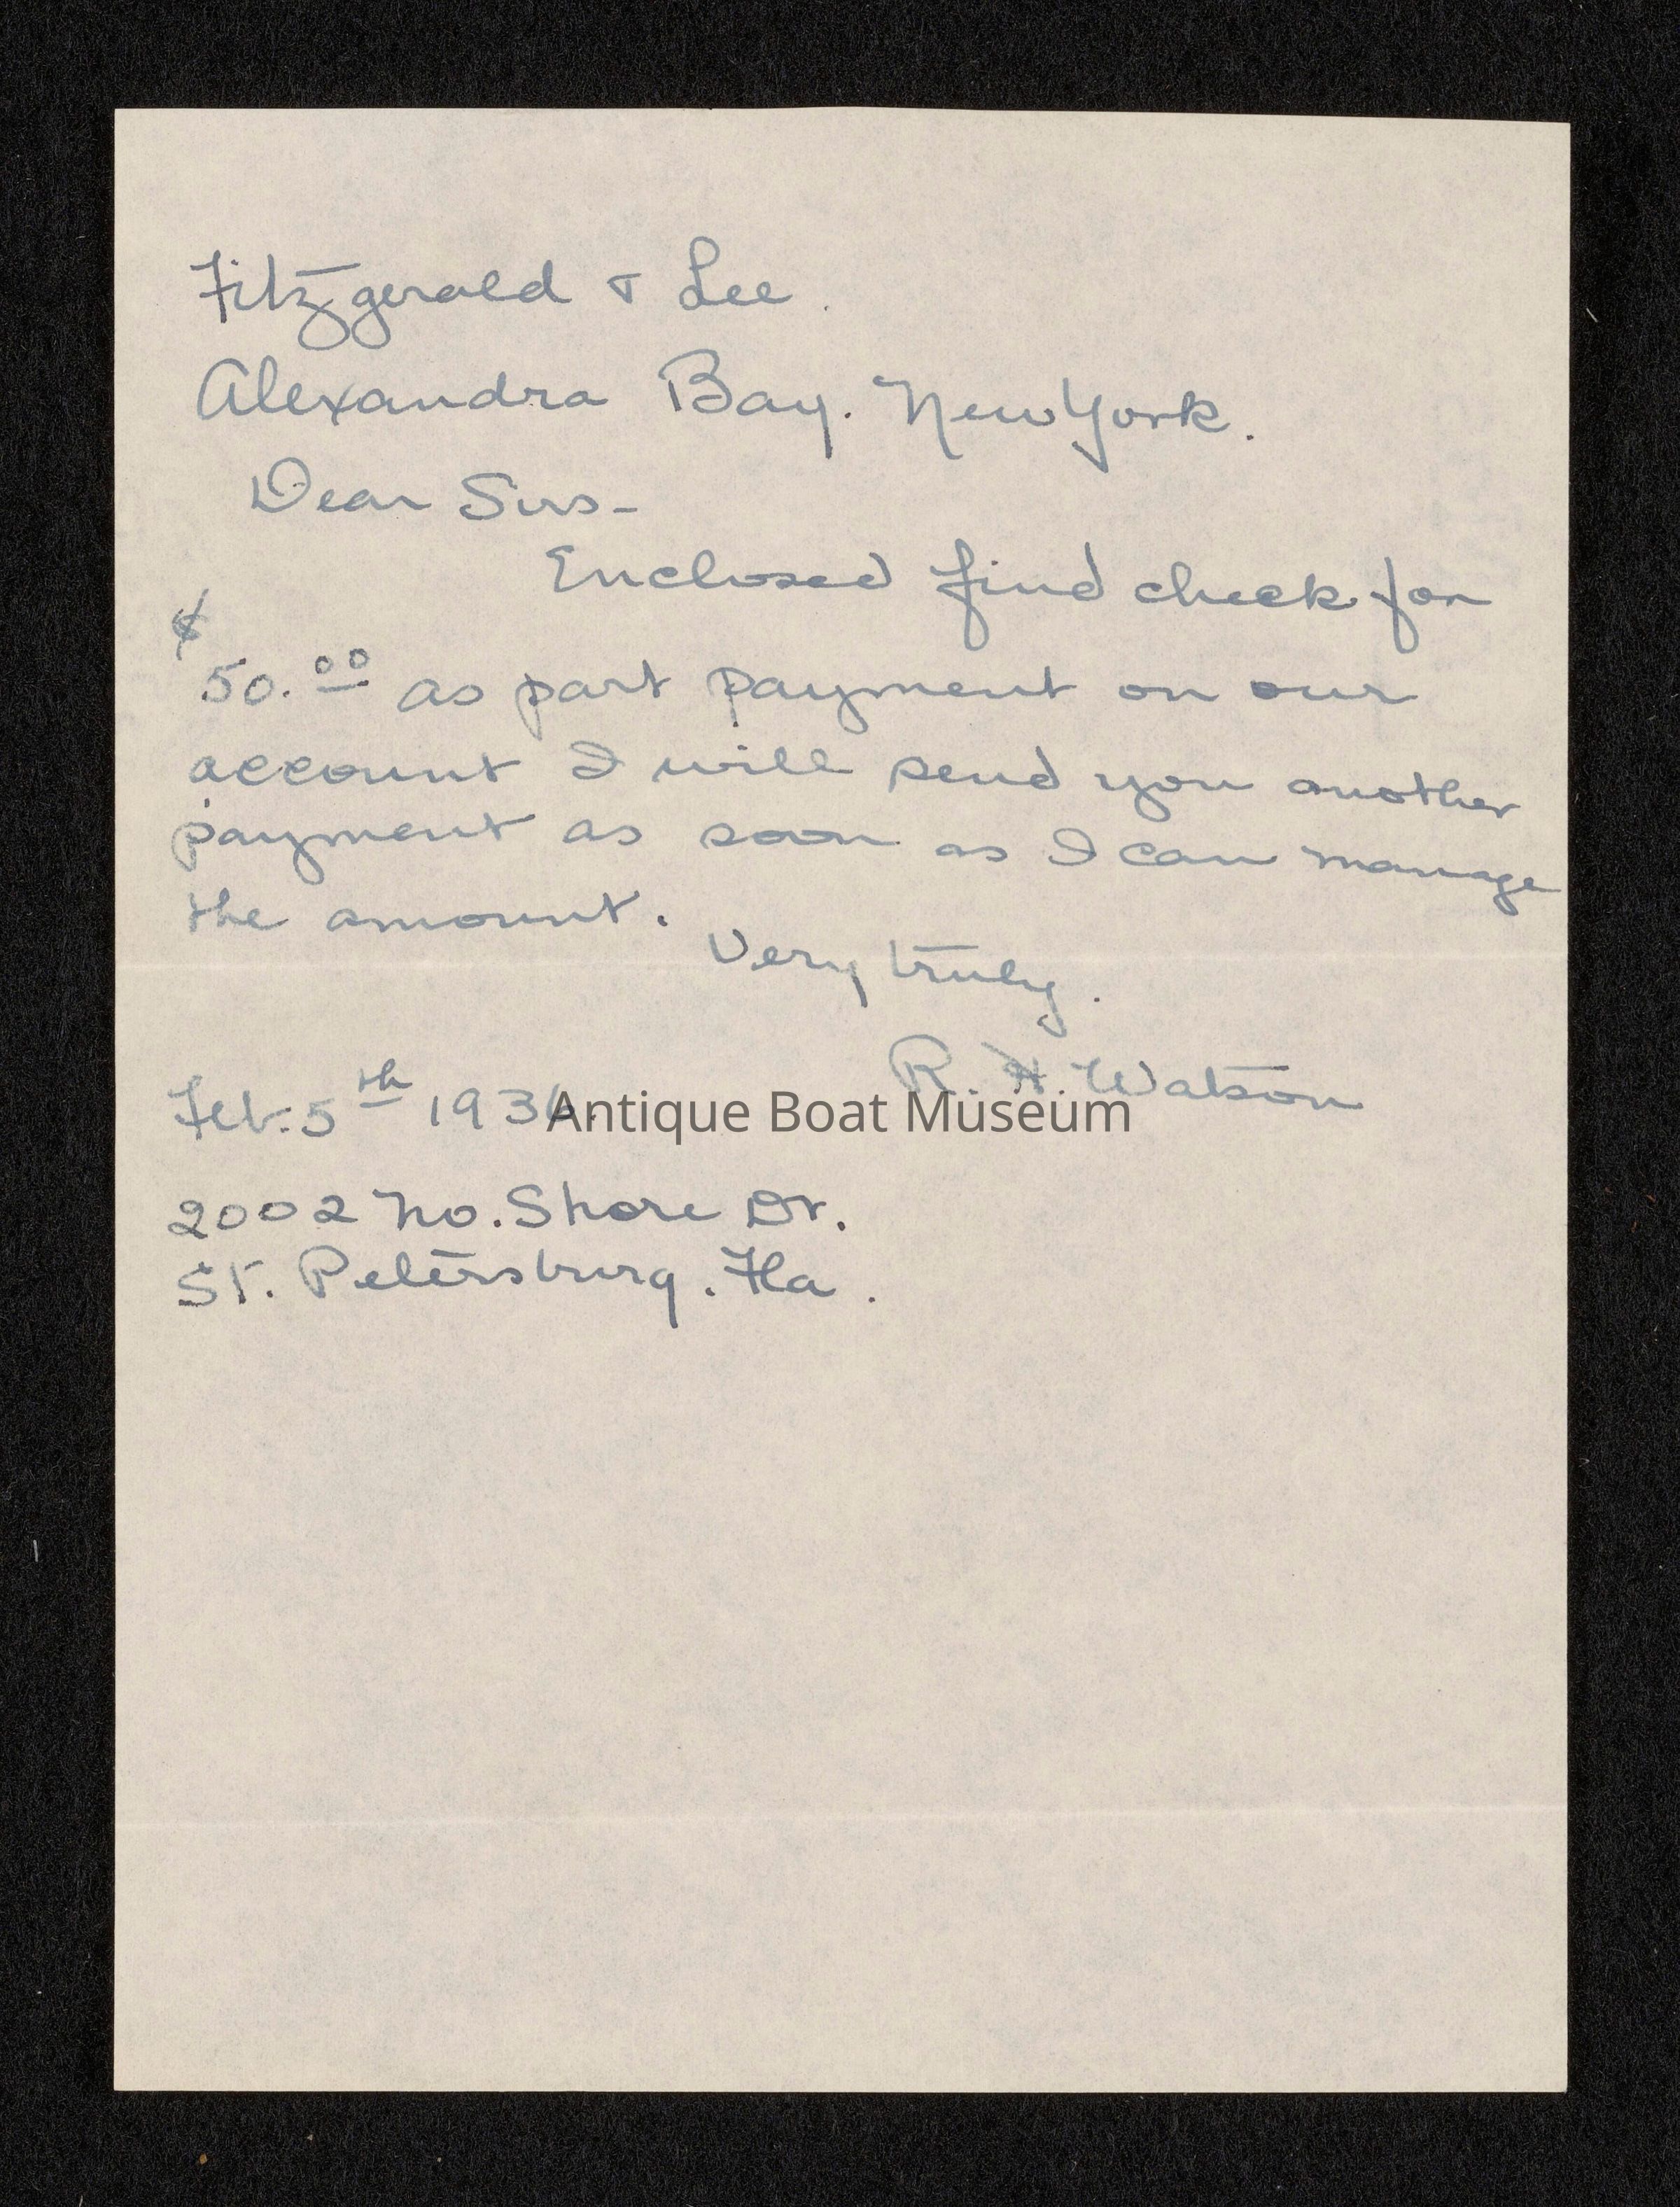 Fitzgerald & Lee.
Alexandra Bay. New York.
Dear Sirs-
Enclosed find check for
$
50.00 as part payment on our
account I will send you another
payment as soon as I can manage
the amount.
Very truly.
R. H. Watson
Feb. 5th 1936.
Antique Boat Museum
2002 No. Shore Dr.
St. Petersburg. Fla.